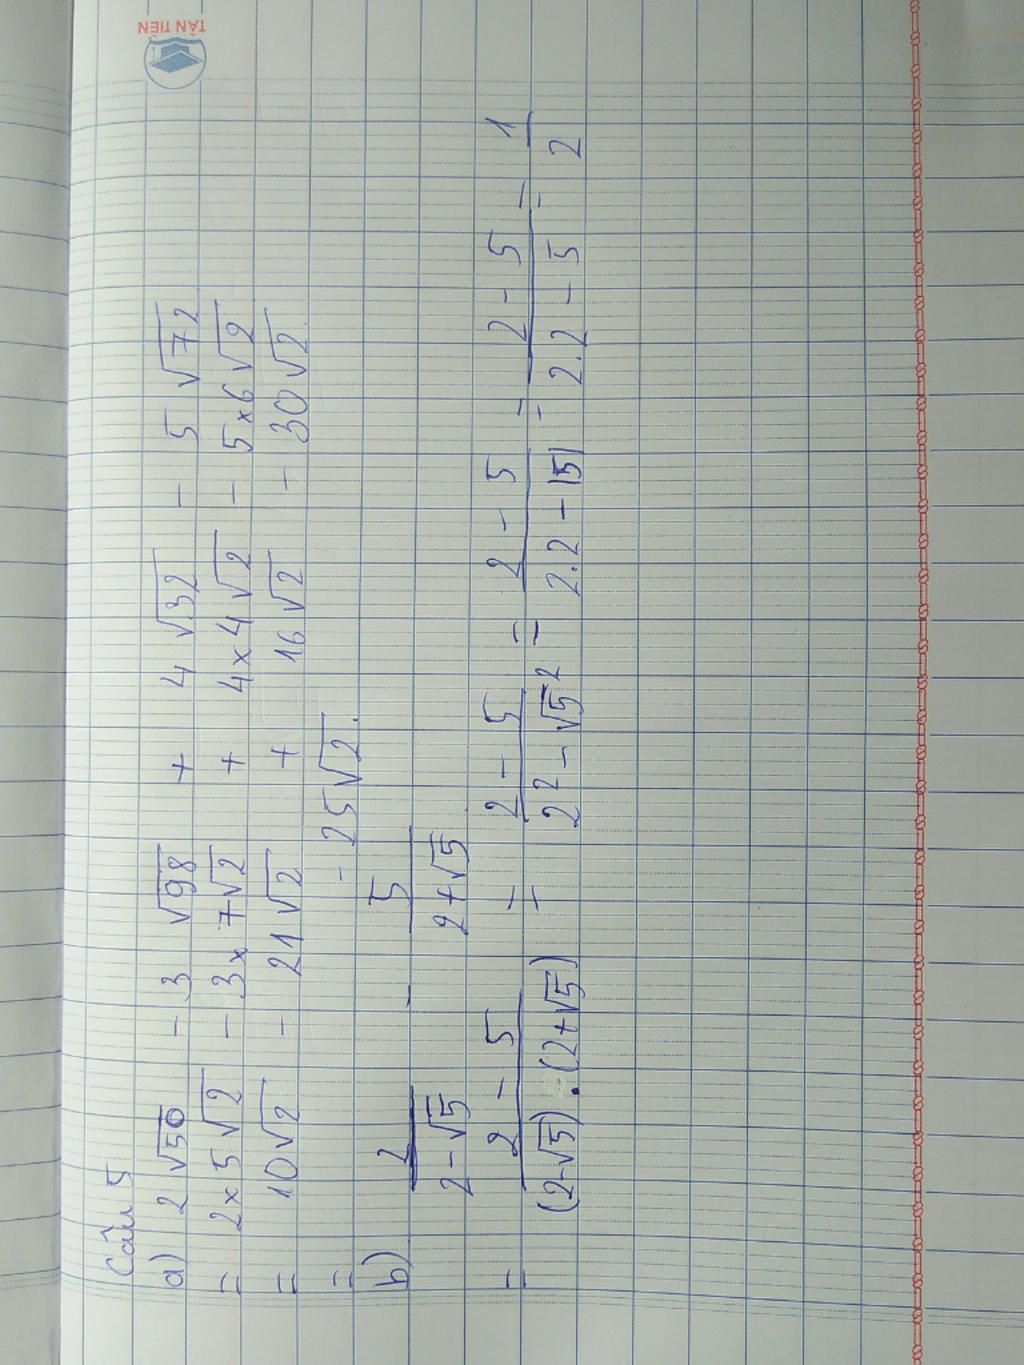 TÂN TIẾN
Câu 5
a) 2√50 - 3√98 + 4√32 - 5√72
= 2x5√2 - 3x7√2 + 4x4√2 - 5x6√2
= 10√2 - 21√2 + 16√2 - 30√2
= - 25√2.
b) 2/(2-√5) - 5/(2+√5)
= (2 - 5)/((2-√5).(2+√5)) = (2 - 5)/(2² - √5²) = (2 - 5)/(2.2 - |5|) = (2 - 5)/(2.2 - 5) = 1/2